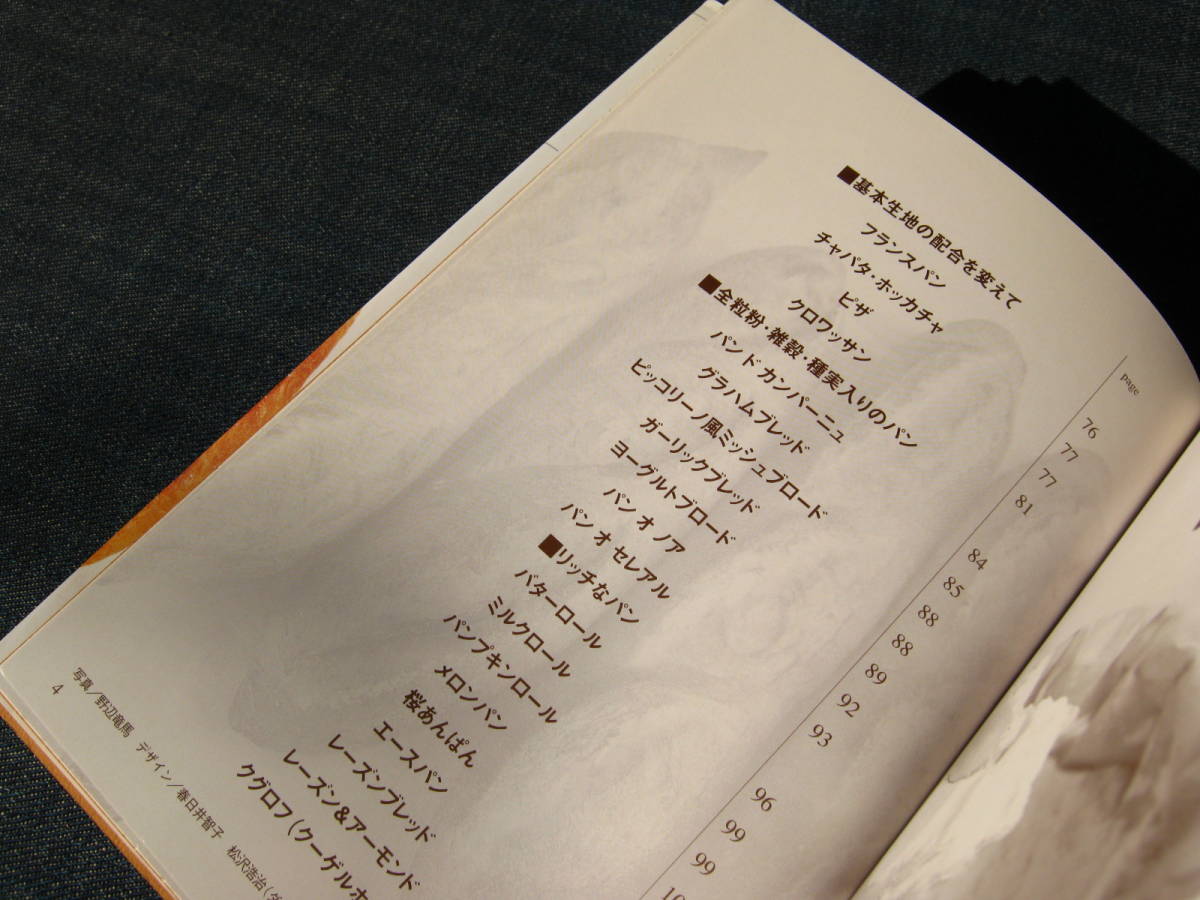 ■基本生地の配合を変えて
フランスパン
チャパタ・ホッカチャ
ピザ
クロワッサン
■全粒粉・雑穀・種実入りのパン
パン ド カンパーニュ
グラハムブレッド
ピッコリーノ風ミッシュブロード
ガーリックブレッド
ヨーグルトブロード
パン オ ノア
パン オ セレアル
■リッチなパン
バターロール
ミルクロール
パンプキンロール
メロンパン
桜あんぱん
エースパン
レーズンブレッド
レーズン&アーモンド
クグロフ(クーゲルホ
page
76
77
77
81
84
85
88
88
89
92
93
96
99
99
写真/野辺竜馬 デザイン/春日井智子 松沢浩治(ダ
4